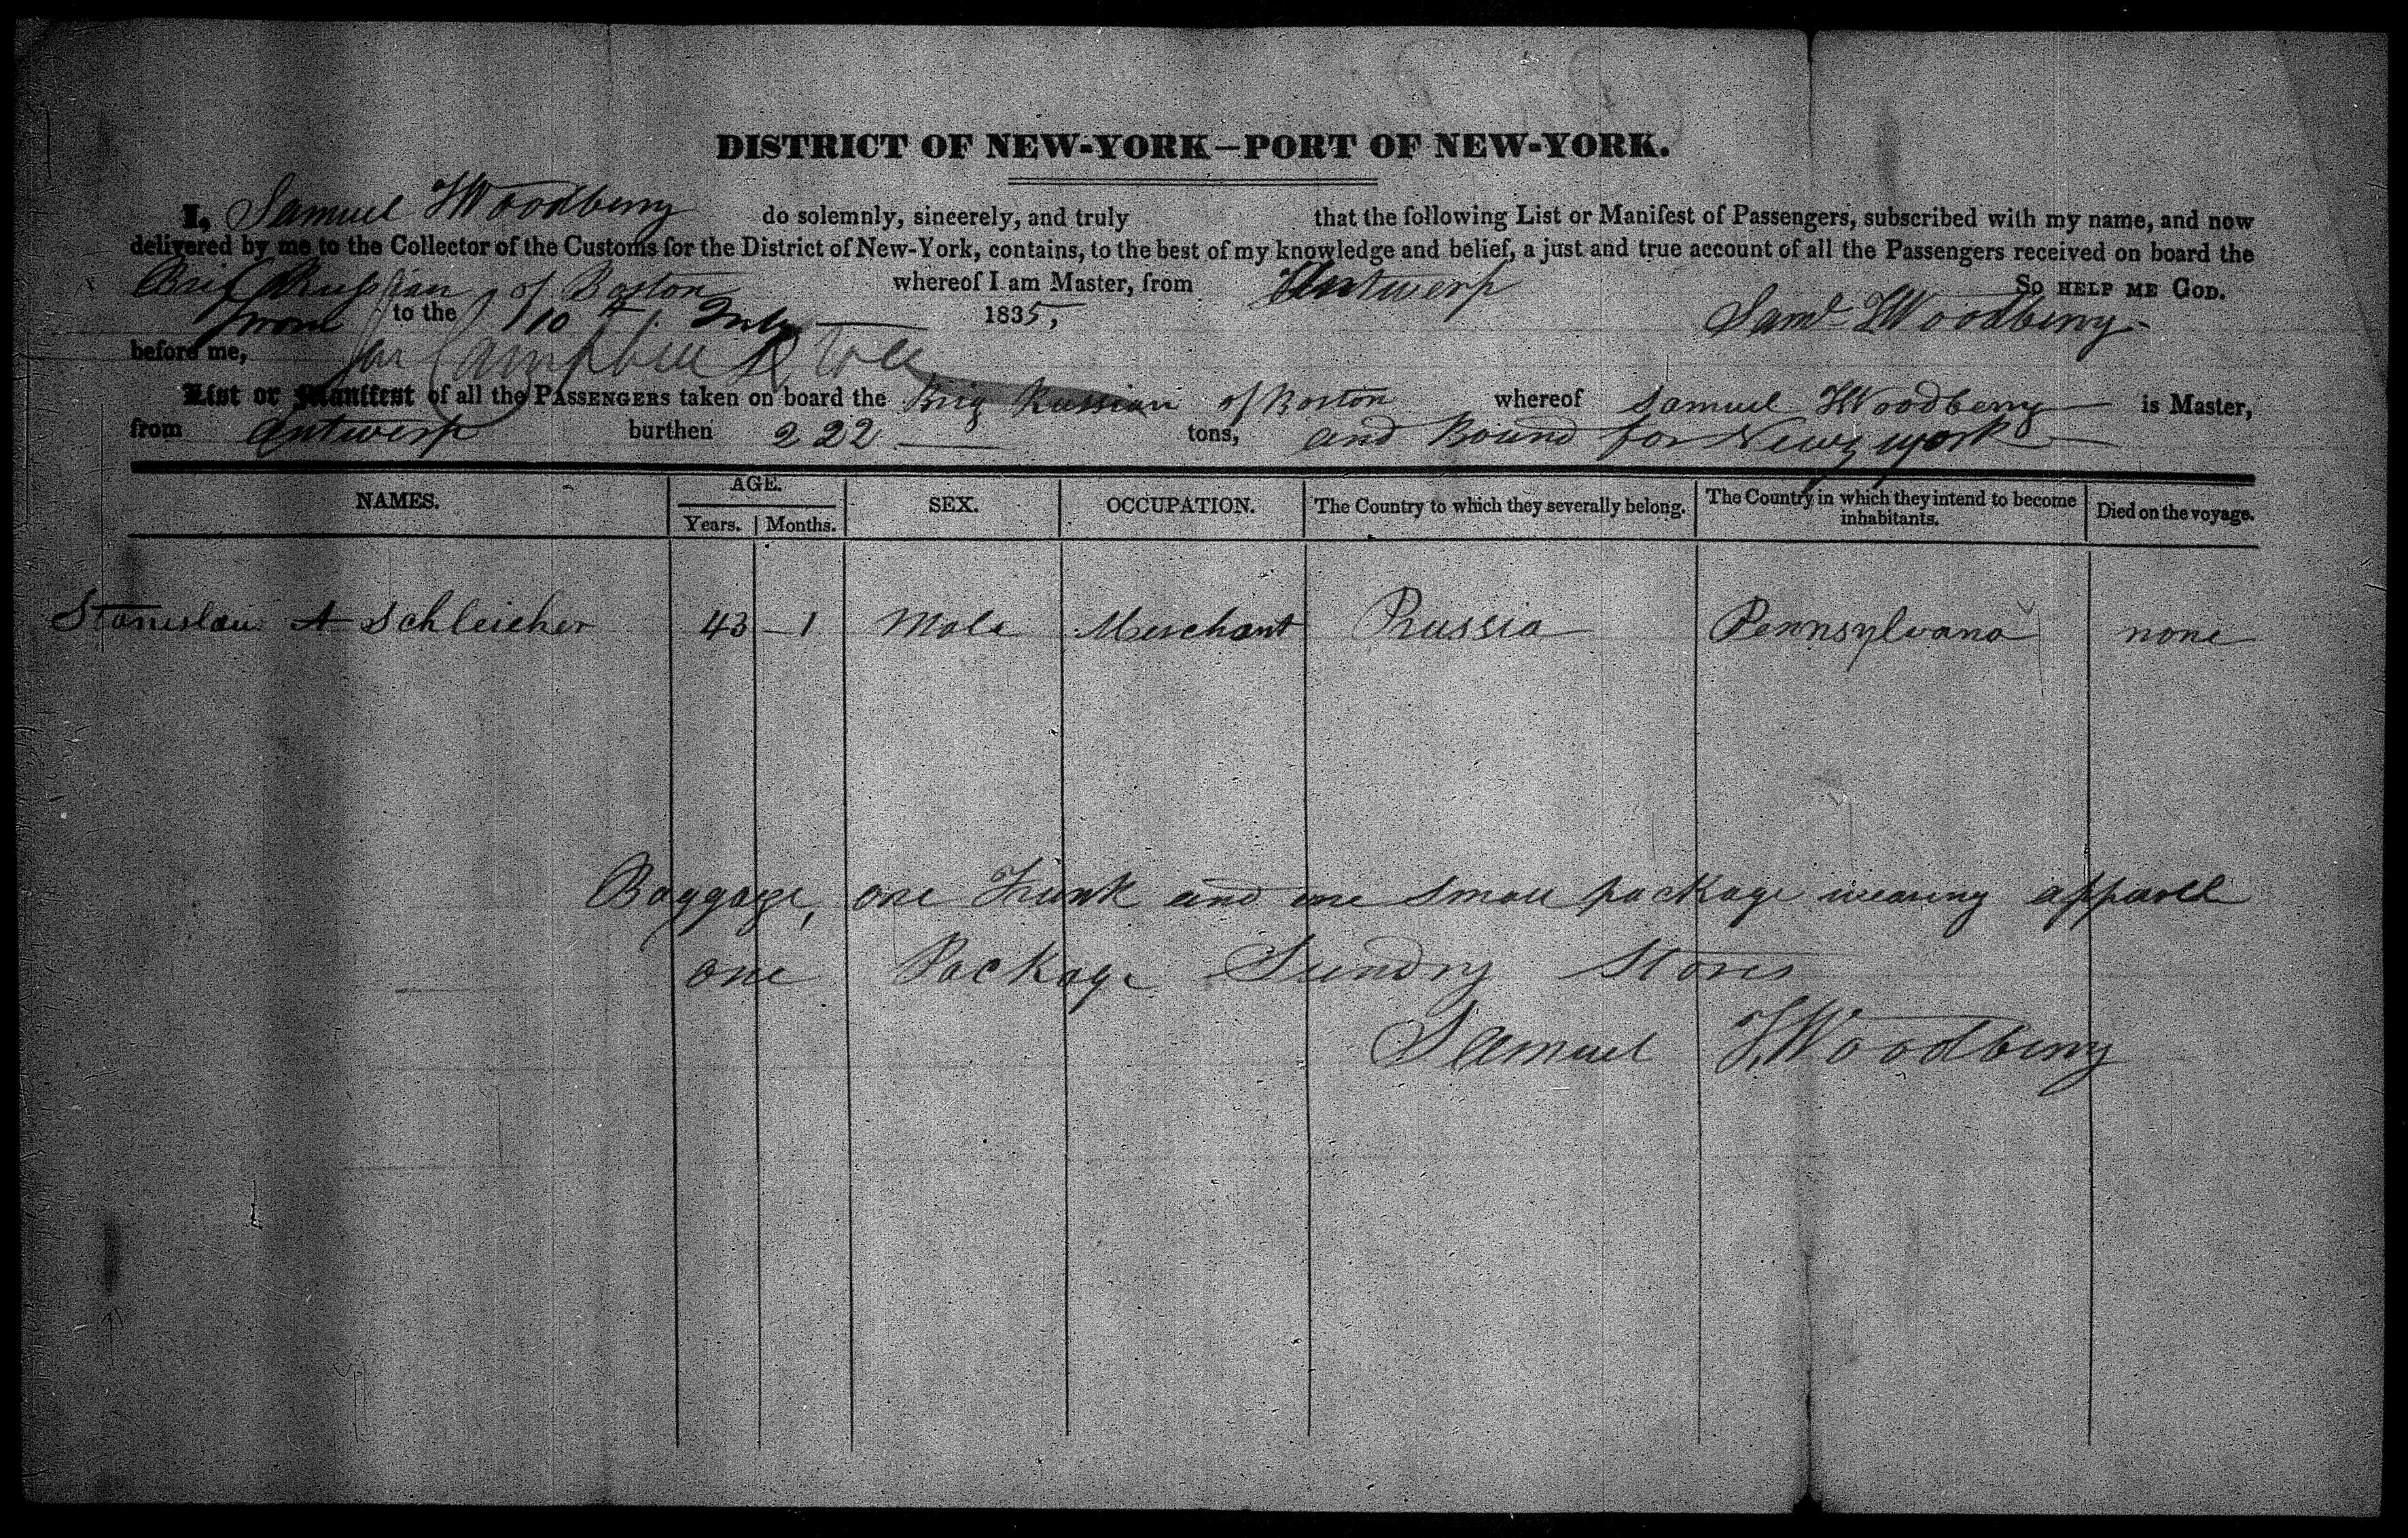 DISTRICT OF NEW-YORK—PORT OF NEW-YORK.
I, Samuel H Woodberry do solemnly, sincerely, and truly that the following List or Manifest of Passengers, subscribed with my name, and now
delivered by me to the Collector of the Customs for the District of New-York, contains, to the best of my knowledge and belief, a just and true account of all the Passengers received on board the
Brig Russian of Boston whereof I am Master, from Antwerp So HELP ME GOD.
to the 10th July 1835, Saml H Woodberry
before me,
List or Manifest of all the PASSENGERS taken on board the Brig Russian of Boston whereof Samuel H Woodberry is Master,
from Antwerp burthen 222 tons, and Bound for New york
NAMES. AGE. SEX. OCCUPATION. The Country to which they severally belong. The Country in which they intend to become inhabitants. Died on the voyage.
Years. Months.
Stanislau A Schleicher 43 — 1 Male Merchant Russia Pennsylvana none
Baggage, one Trunk and one small package wearing apparel
one Package Sundry Stores
Samuel H Woodberry